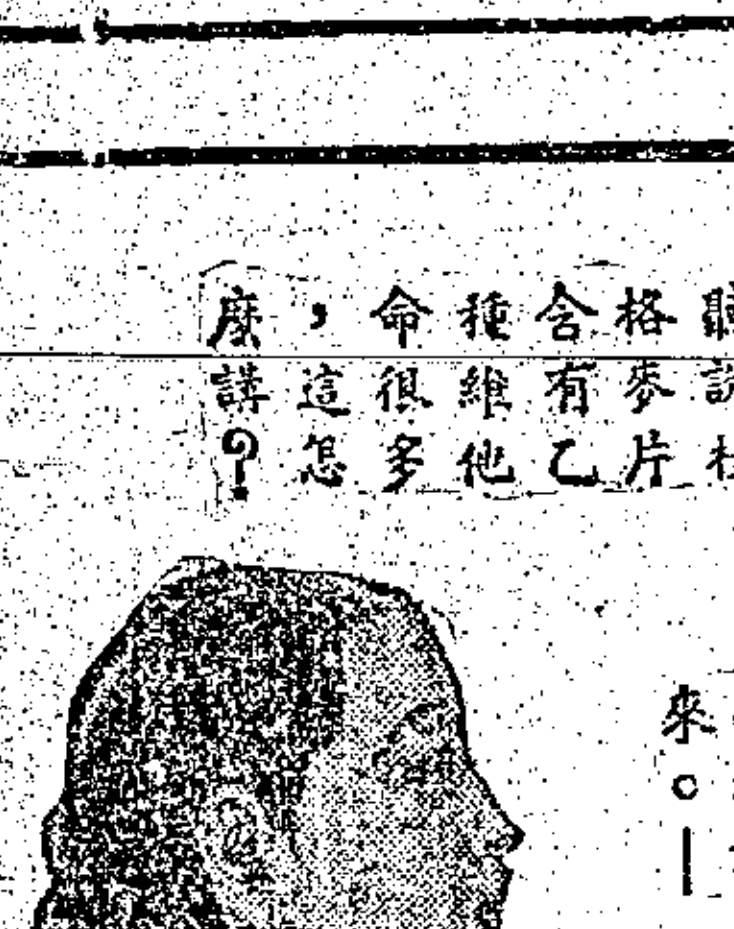 格麥片
含有乙
種維他
命很多
，這怎
麼講？
來。—